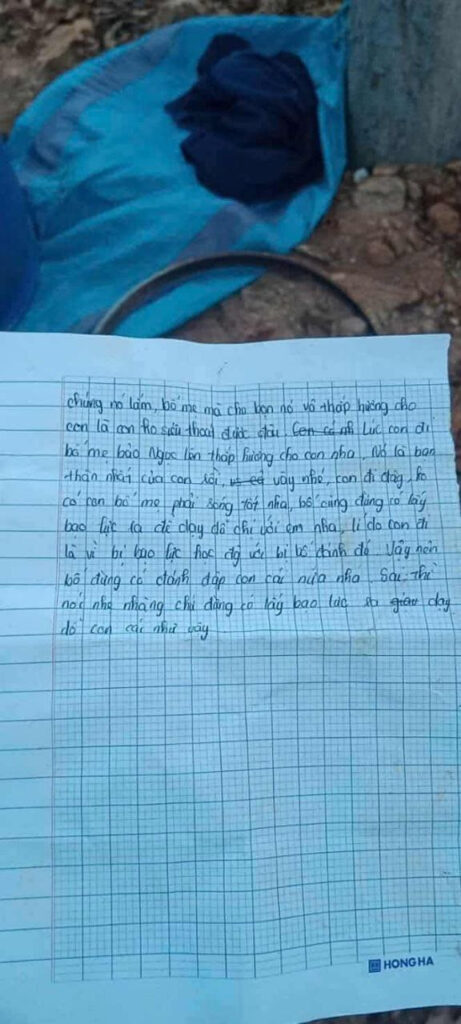 chúng nó lắm, bố mẹ mà cho bọn nó vô thắp hương cho
con là con ko siêu thoát được đâu. Con có nh Lúc con đi
bố mẹ bảo Ngọc lên thắp hương cho con nha, Nó là bạn
thân nhất của con rồi, vậy nhé, con đi đây, ko
có con bố mẹ phải sống tốt nha, bố cũng đừng có lấy
bạo lực ra để dạy dỗ chị với em nha, lí do con đi
là vì bị bạo lực học đg với bị bố đánh đó Vậy nên
bố đừng có đánh đập con cái nữa nha. Sai thì
nói nhẹ nhàng chứ đừng có lấy bạo lực ra dạy
dỗ con cái như vậy
HONG HA